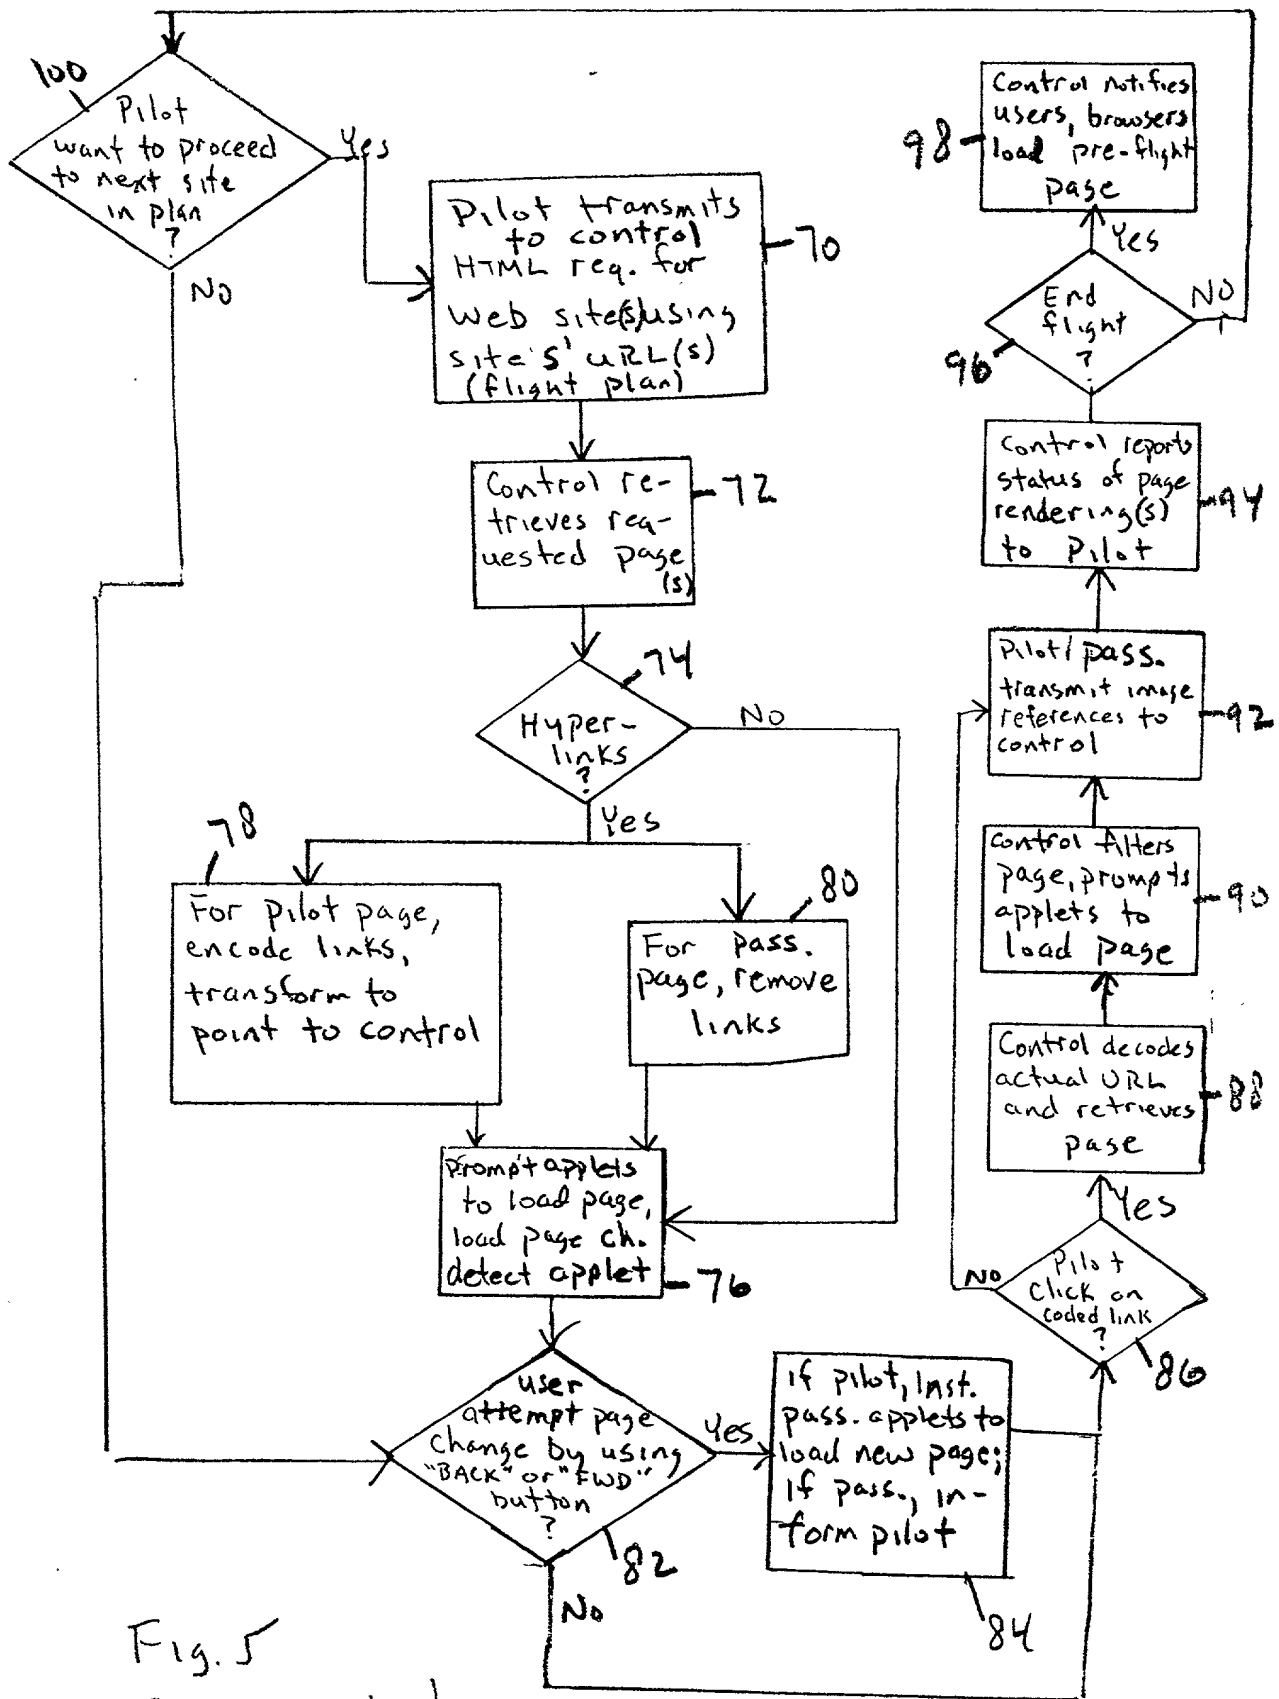 100
Pilot
want to proceed
to next site
in plan
?
Yes
NO
Pilot transmits
to control
HTML req. for
Web site(s) using
site's' URL(s)
(flight plan)
70
Control re-
trieves req-
uested page
(s)
72
74
Hyper-
links
?
NO
Yes
78
For pilot page,
encode links,
transform to
point to control
80
For pass.
page, remove
links
prompt applets
to load page,
load page ch.
detect applet
76
user
attempt page
change by using
"BACK" or "FWD"
button
?
82
Yes
No
if pilot, inst.
pass. applets to
load new page;
if pass., in-
form pilot
84
Pilot
click on
coded link
?
86
NO
Yes
Control decodes
actual URL
and retrieves
page
88
control filters
page, prompts
applets to
load page
90
Pilot/pass.
transmit image
references to
control
92
Control reports
status of page
rendering(s)
to Pilot
94
End
flight
?
96
NO
Yes
Control notifies
users, browsers
load pre-flight
page
98
Fig. 5